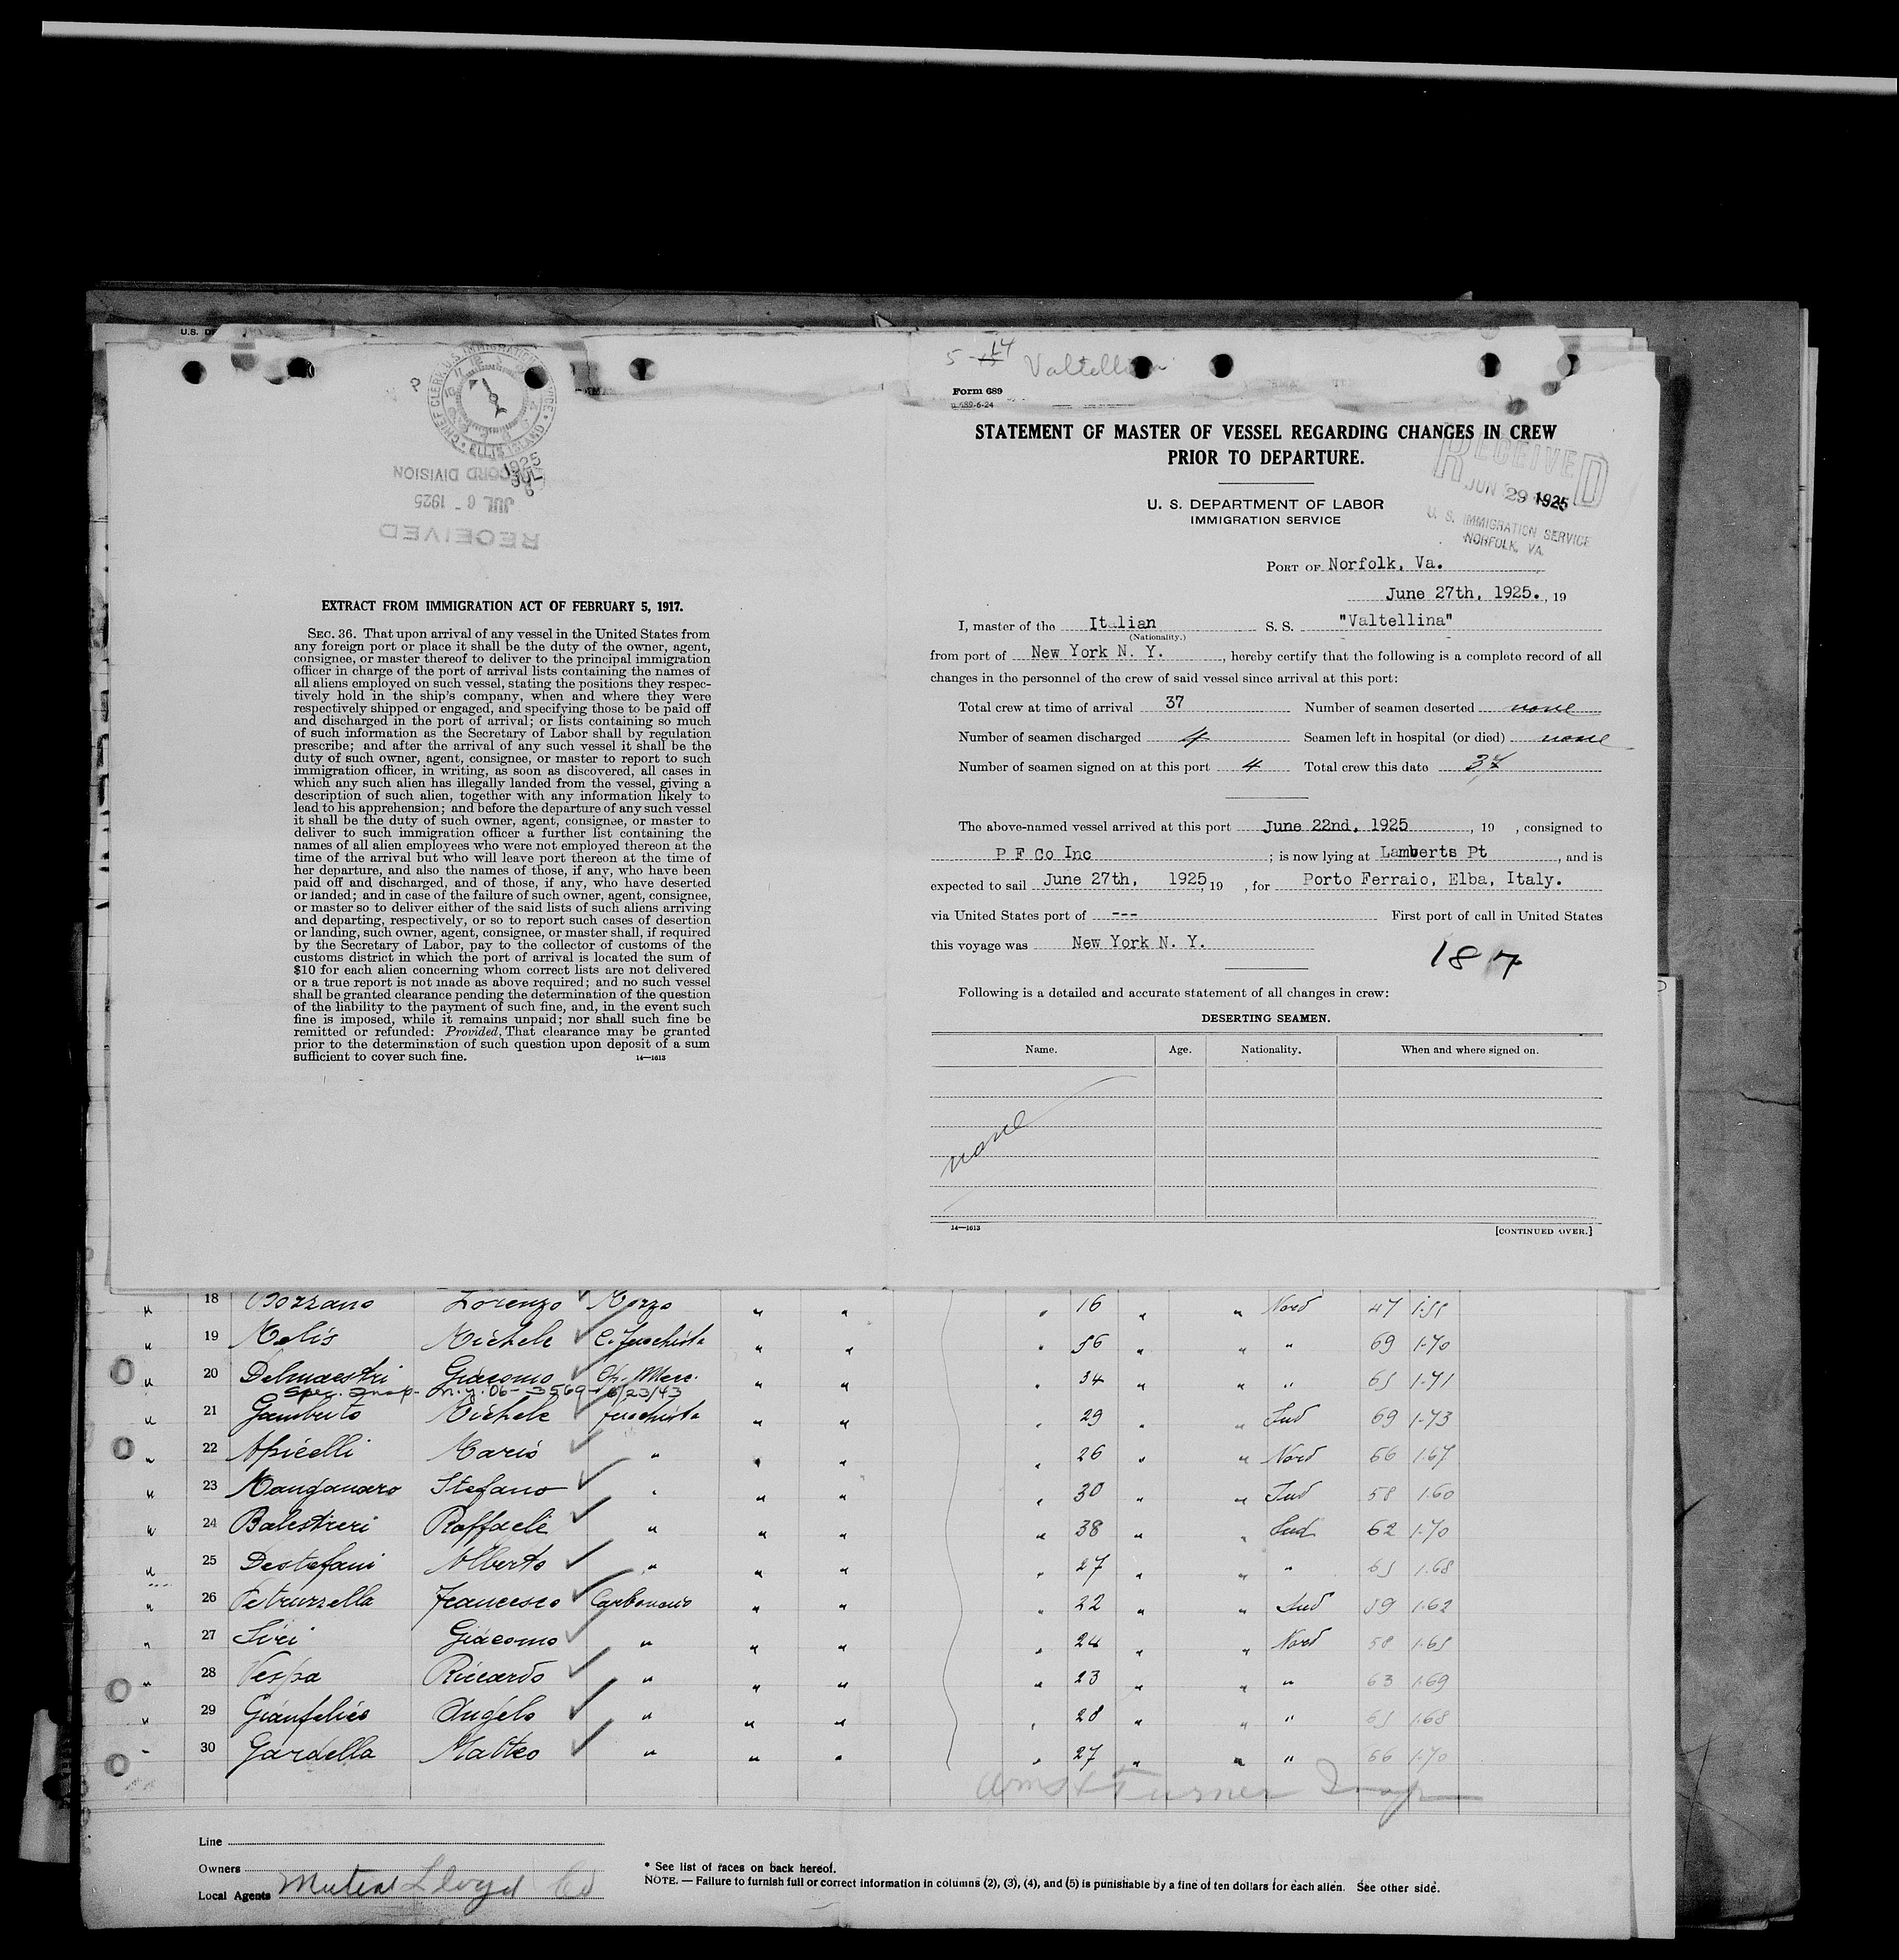 U.S. DE
CHIEF CLERK, U.S. IMMIGRATION SERVICE
ELLIS ISLAND
1925
JUL
6
RECORD DIVISION
JUL 6 - 1925
RECEIVED
EXTRACT FROM IMMIGRATION ACT OF FEBRUARY 5, 1917.
SEC. 36. That upon arrival of any vessel in the United States from
any foreign port or place it shall be the duty of the owner, agent,
consignee, or master thereof to deliver to the principal immigration
officer in charge of the port of arrival lists containing the names of
all aliens employed on such vessel, stating the positions they respec-
tively hold in the ship's company, when and where they were
respectively shipped or engaged, and specifying those to be paid off
and discharged in the port of arrival; or lists containing so much
of such information as the Secretary of Labor shall by regulation
prescribe; and after the arrival of any such vessel it shall be the
duty of such owner, agent, consignee, or master to report to such
immigration officer, in writing, as soon as discovered, all cases in
which any such alien has illegally landed from the vessel, giving a
description of such alien, together with any information likely to
lead to his apprehension; and before the departure of any such vessel
it shall be the duty of such owner, agent, consignee, or master to
deliver to such immigration officer a further list containing the
names of all alien employees who were not employed thereon at the
time of the arrival but who will leave port thereon at the time of
her departure, and also the names of those, if any, who have been
paid off and discharged, and of those, if any, who have deserted
or landed; and in case of the failure of such owner, agent, consignee,
or master so to deliver either of the said lists of such aliens arriving
and departing, respectively, or so to report such cases of desertion
or landing, such owner, agent, consignee, or master shall, if required
by the Secretary of Labor, pay to the collector of customs of the
customs district in which the port of arrival is located the sum of
$10 for each alien concerning whom correct lists are not delivered
or a true report is not made as above required; and no such vessel
shall be granted clearance pending the determination of the question
of the liability to the payment of such fine, and, in the event such
fine is imposed, while it remains unpaid; nor shall such fine be
remitted or refunded: Provided, That clearance may be granted
prior to the determination of such question upon deposit of a sum
sufficient to cover such fine. 14—1613
5 - 14 Valtellina
Form 689
STATEMENT OF MASTER OF VESSEL REGARDING CHANGES IN CREW
PRIOR TO DEPARTURE.
RECEIVED
JUN 29 1925
U. S. IMMIGRATION SERVICE
NORFOLK, VA.
U. S. DEPARTMENT OF LABOR
IMMIGRATION SERVICE
PORT OF Norfolk, Va.
June 27th, 1925. , 19
I, master of the Italian S. S. "Valtellina"
(Nationality.)
from port of New York N. Y. , hereby certify that the following is a complete record of all
changes in the personnel of the crew of said vessel since arrival at this port:
Total crew at time of arrival 37 Number of seamen deserted none
Number of seamen discharged 4 Seamen left in hospital (or died) none
Number of seamen signed on at this port 4 Total crew this date 37
The above-named vessel arrived at this port June 22nd, 1925 , 19 , consigned to
P F Co Inc ; is now lying at Lamberts Pt , and is
expected to sail June 27th, 1925, 19 , for Porto Ferraio, Elba, Italy.
via United States port of --- First port of call in United States
this voyage was New York N. Y.
187
Following is a detailed and accurate statement of all changes in crew:
DESERTING SEAMEN.
Name. Age. Nationality. When and where signed on.
none
14—1613 [CONTINUED OVER.]
" 18 Bozzano Lorenzo Mozzo " " " 16 " " Nord 47 1.55
" 19 Melis Michele C. Fuochista " " " 56 " " " 69 1.70
" 20 Delmaestri Giacomo " " " 34 " " " 65 1.71
Spec. Insp. N.Y. 06-3569 - 6/23/43
" 21 Gamberto Michele Fuochista " " " 29 " " Sud 69 1.73
" 22 Apicelli Mario " " " " 26 " " Nord 66 1.67
" 23 Manganaro Stefano " " " " 30 " " Sud 58 1.60
" 24 Balestrieri Raffaele " " " " 38 " " Sud 62 1.70
" 25 Destefani Alberto " " " " 27 " " " 65 1.68
" 26 Petruzzella Francesco Carbonaio " " " 22 " " Sud 59 1.62
" 27 Siri Giacomo " " " " 24 " " Nord 58 1.65
" 28 Vespa Riccardo " " " " 23 " " " 63 1.69
" 29 Gianfelice Angelo " " " " 28 " " " 65 1.68
" 30 Gardella Matteo " " " " 27 " " " 66 1.70
Turner Insp
Line
Owners
Local Agents Lloyd Co
* See list of races on back hereof.
NOTE. — Failure to furnish full or correct information in columns (2), (3), (4), and (5) is punishable by a fine of ten dollars for each alien. See other side.